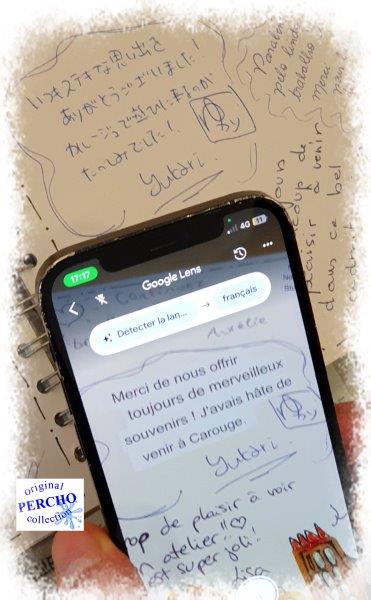 いつもステキな思い出を
ありがとうございました!
カルージュで遊びに来るのが
たのしみでした!
Yutari.
Parabéns
pelo lindo
trabalho
Merci
beaucoup de
plaisir à venir
dans ce bel
17:17
4G
11
Google Lens
Détecter la lan...
→
français
Aurélie
Merci de nous offrir
toujours de merveilleux
souvenirs ! J'avais hâte de
venir à Carouge.
Yutari.
de plaisir à voir
atelier!!♡
est super joli!
Lisa
original
PERCHO
collection